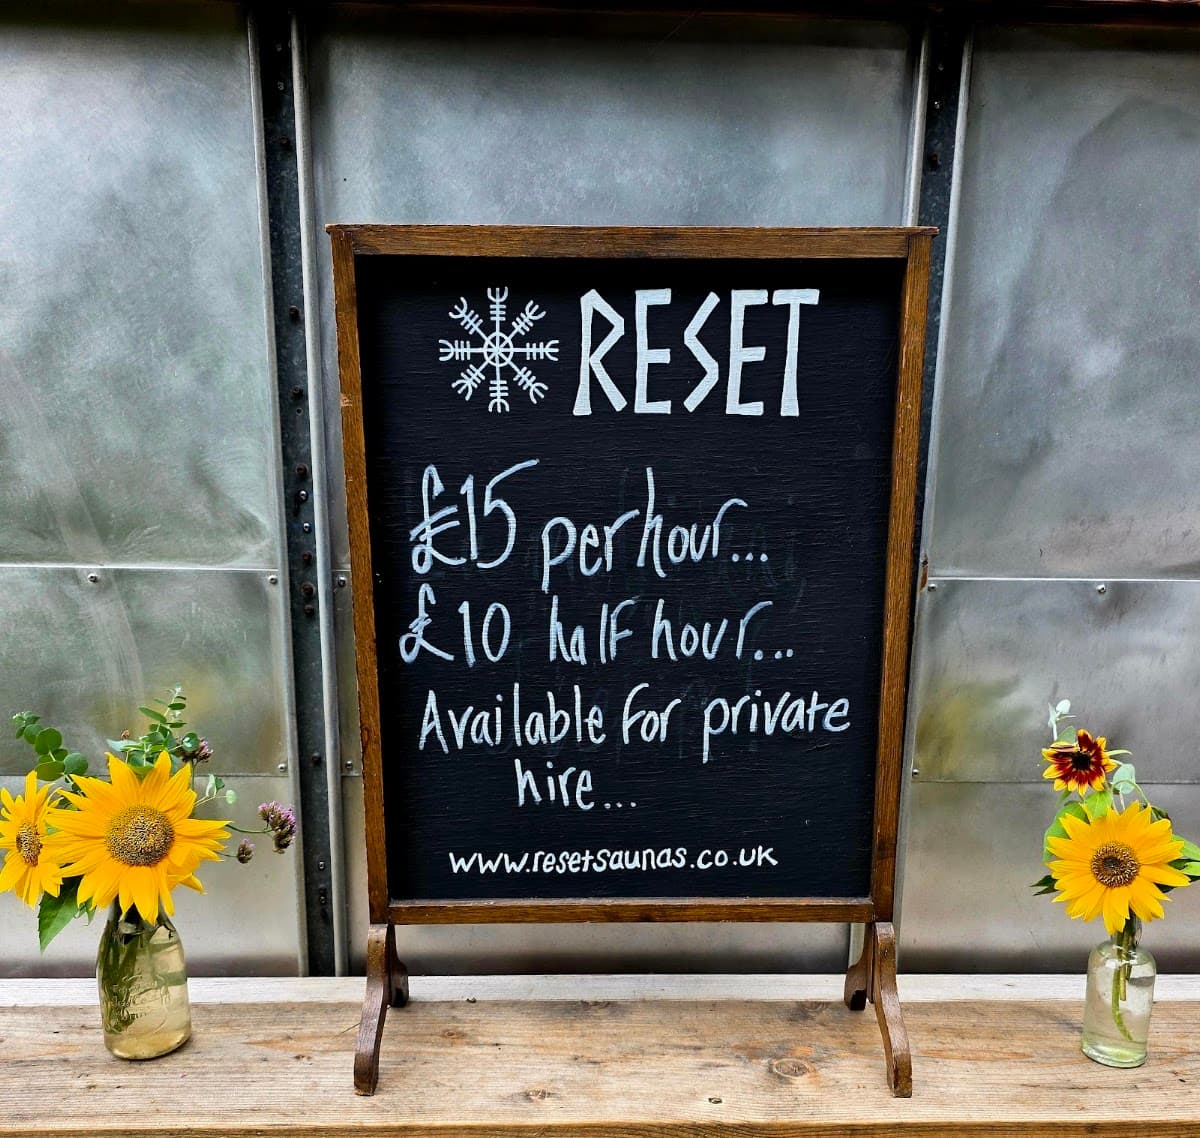 RESET
£15 per hour...
£10 half hour...
Available for private
hire...
www.resetsaunas.co.uk